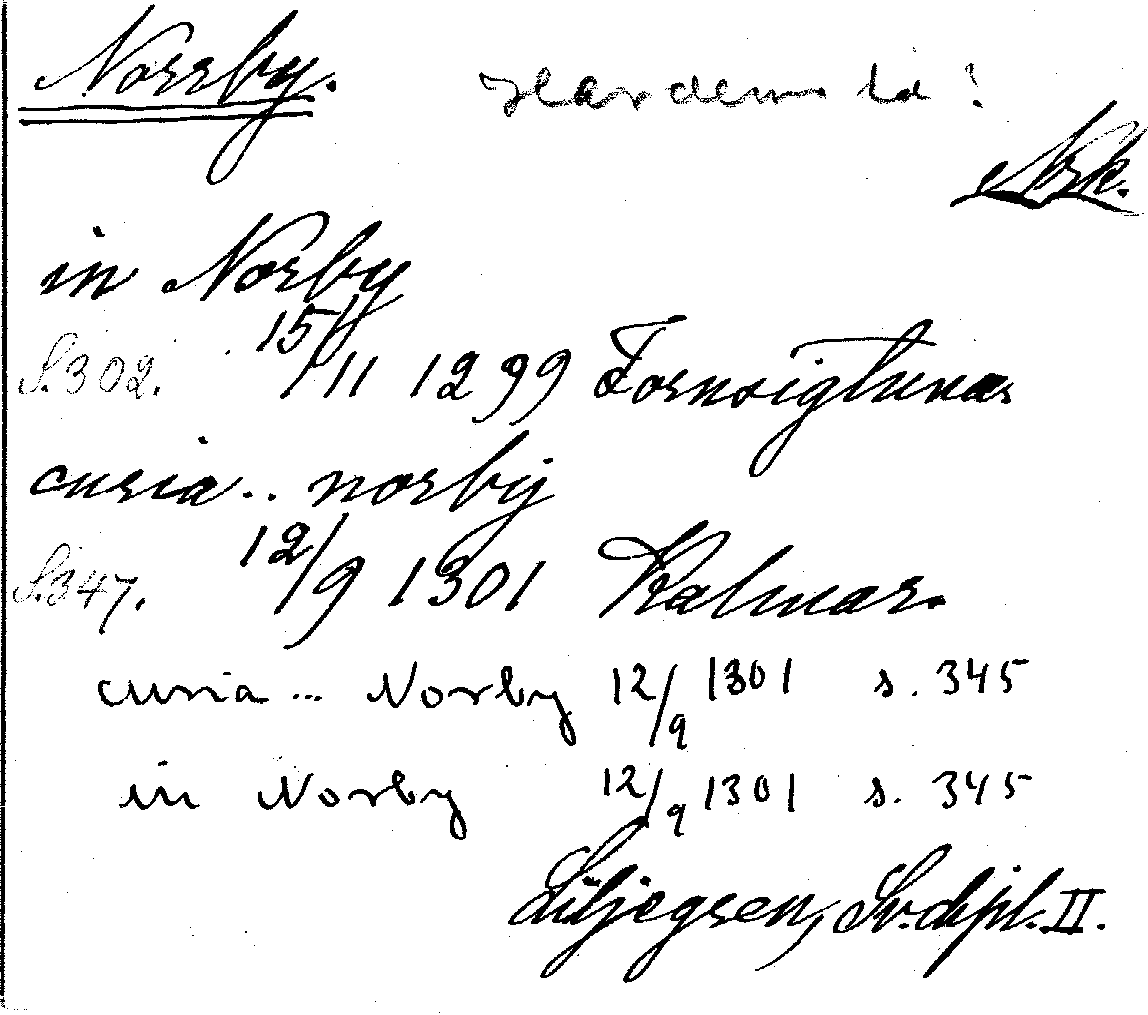 Norrby. Hardemo sn?
Nrk.
in Norby
S. 302. 15/11 1299 Fornsigtuna
curia .. norbij
S. 347. 12/9 1301 Kalmar.
curia ... Norby 12/9 1301 s. 345
in Norby 12/9 1301 s. 345
Liljegren, Sv. dipl. II.